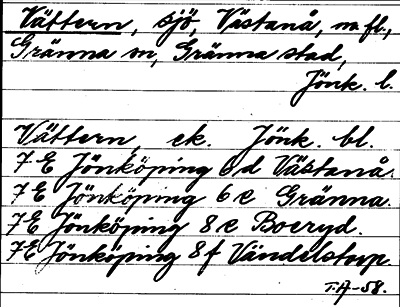 Vättern, sjö, Västanå, m. fl.,
Gränna sn, Gränna stad,
Jönk. l.
Vättern, ek. Jönk. bl.
7 E Jönköping 6 d Västanå.
7 E Jönköping 6 e Gränna.
7 E Jönköping 8 e Boeryd.
7 E Jönköping 8 f Vändelstorp
T.A-58.